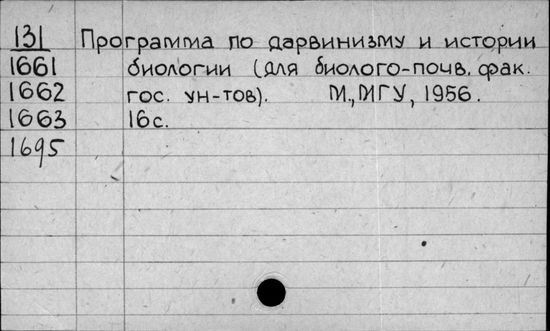 131 Программа по дарвинизму и истории
1661 биологии (для биолого-почв. фак.
1662 гос. ун-тов). М., МГУ, 1956.
1663 16с.
1695